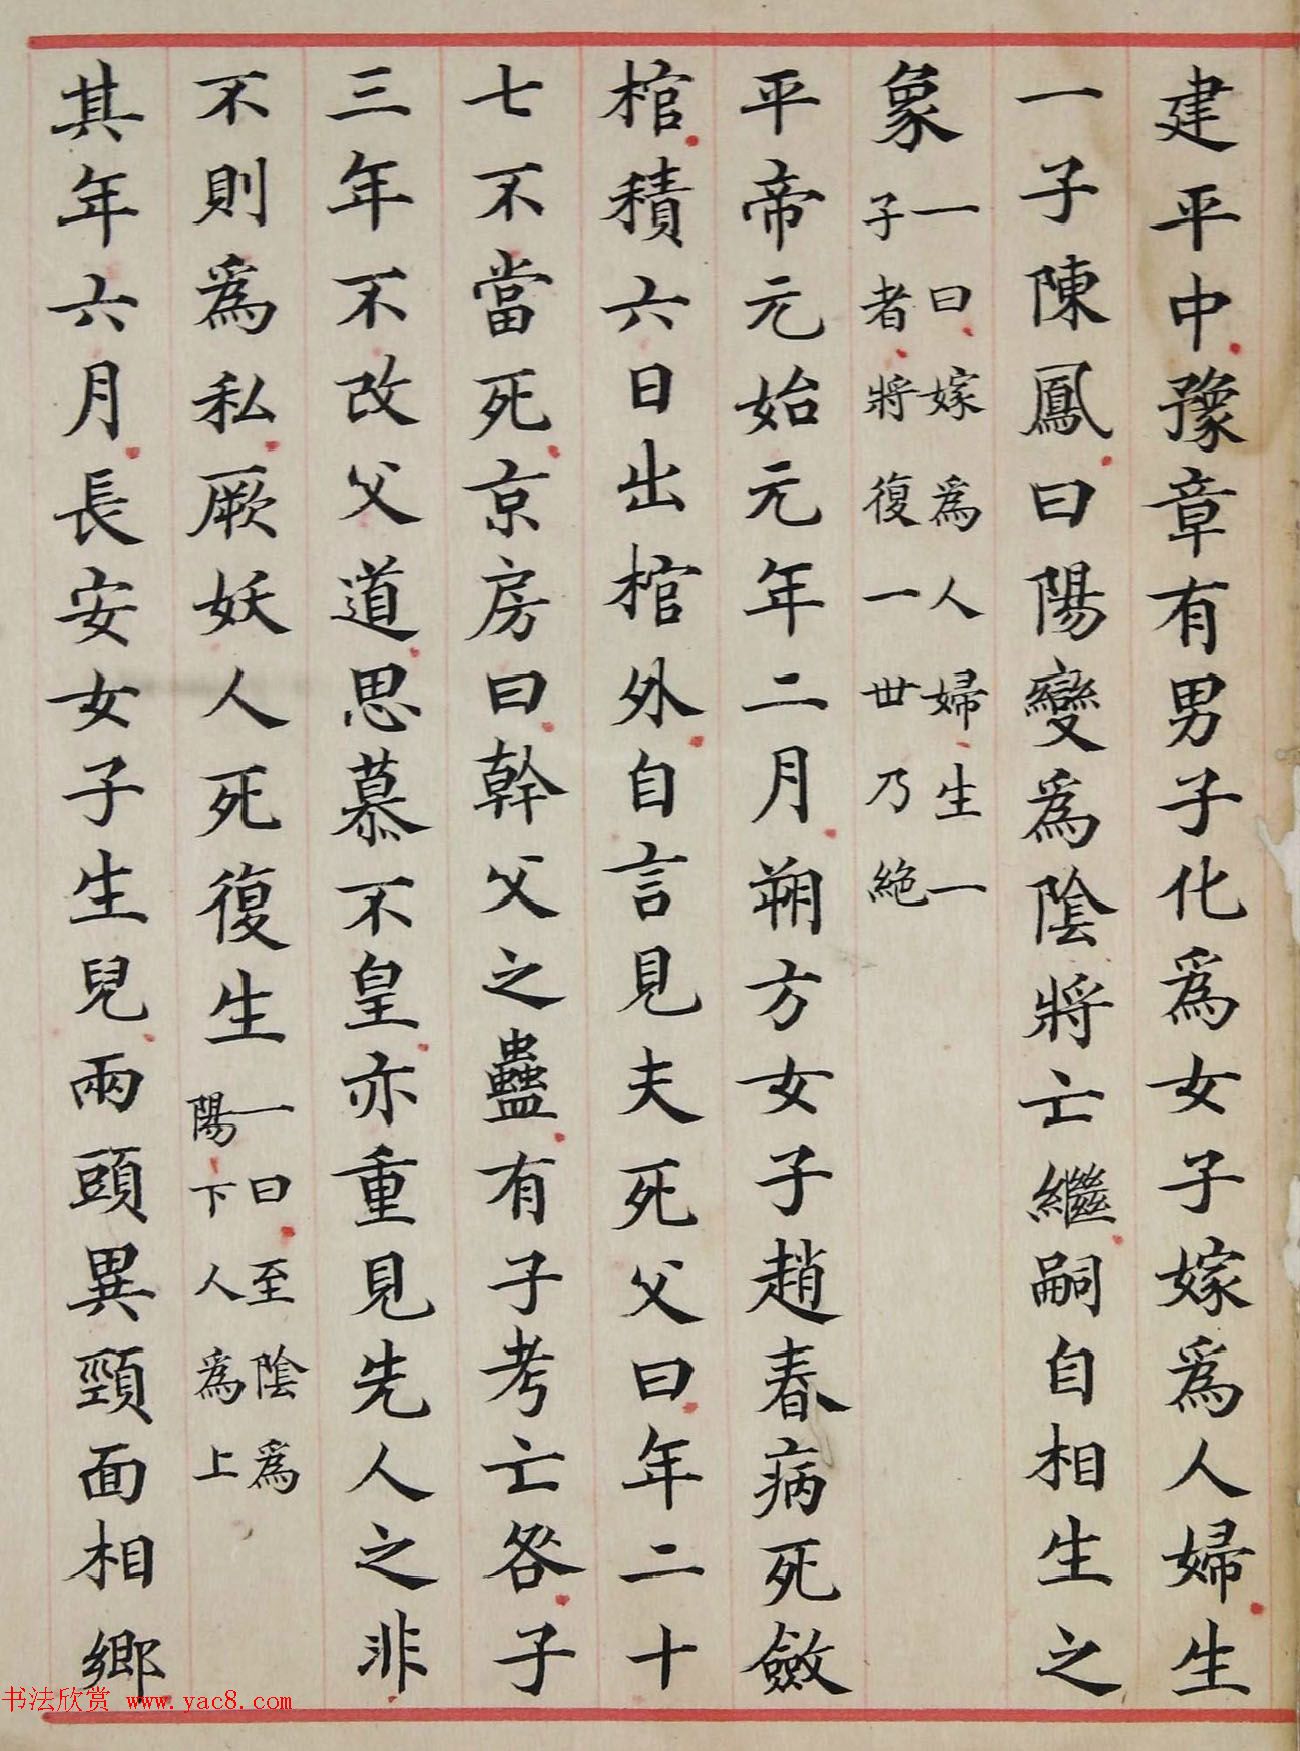 建平中豫章有男子化爲女子嫁爲人婦生
一子陳鳳曰陽變爲陰將亡繼嗣自相生之
象一曰嫁爲人婦生一
子者將復一世乃絶
平帝元始元年二月朔方女子趙春病死斂
棺積六日出棺外自言見夫死父曰年二十
七不當死京房曰幹父之蠱有子考亡咎子
三年不改父道思慕不皇亦重見先人之非
不則爲私厥妖人死復生一曰至陰爲
陽下人爲上
其年六月長安女子生兒兩頭異頸面相鄉
书法欣赏 www.yac8.com